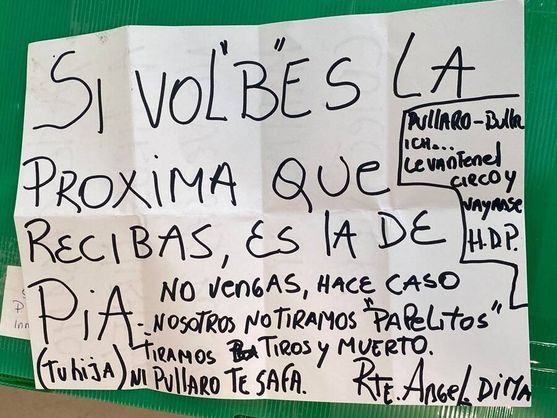 SI VOL"B"ES LA
PROXIMA QUE
RECIBAS, ES lA DE
PiA.
PULLARO-Bullr
ICH...
LevanTenel
CIRCO y
VAYANSE
H.D.P.
NO VENGAS, HACE CASO
NOSOTROS NO TIRAMOS "PAPELITOS"
TIRAMOS TIROS y MUERTO.
(Tu hija) NI PULLARO TE SAFA.
RTE. ANGEL DIMA